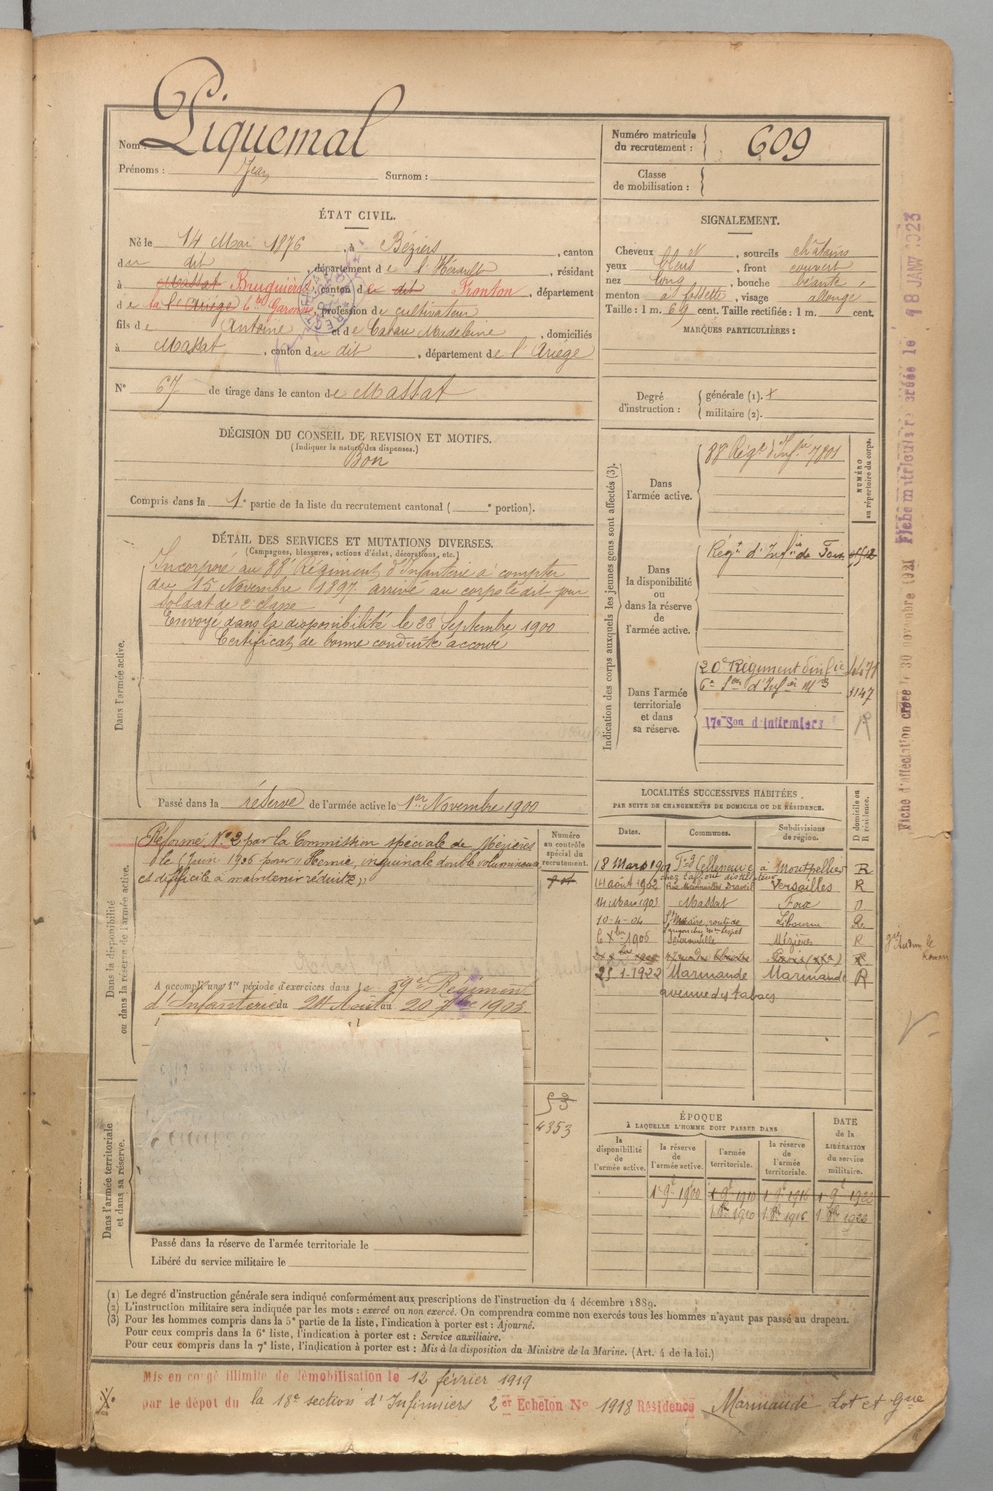 Nom : Piquemal
Prénoms : Jean Surnom :
Numéro matricule du recrutement : 609
Classe de mobilisation :
ÉTAT CIVIL.
Né le 14 Mai 1876, à Béziers, canton
du dit, département de l'Hérault, résidant
à Massat Bruguières, canton de dit Fronton, département
de la l'Ariège Hte Garonne, profession de cultivateur
fils de Antoine et de Madeleine, domiciliés
à Massat, canton du dit, département de l'Ariège
N° 67 de tirage dans le canton de Massat
DÉCISION DU CONSEIL DE REVISION ET MOTIFS.
(Indiquer la nature des dispenses.)
Bon
Compris dans la 1e partie de la liste du recrutement cantonal ( e portion).
SIGNALEMENT.
Cheveux , sourcils châtains
yeux bleus, front couvert
nez long, bouche béante,
menton à fossette, visage allongé
Taille : 1 m. 69 cent. Taille rectifiée : 1 m. cent.
MARQUES PARTICULIÈRES :
Degré d'instruction :
générale (1).
militaire (2).
DÉTAIL DES SERVICES ET MUTATIONS DIVERSES.
(Campagnes, blessures, actions d'éclat, décorations, etc.)
Dans l'armée active.
Incorporé au 88e Régiment d'Infanterie à compter
du 15 Novembre 1897. arrivé au corps le dit jour
soldat de 2e classe
Envoyé dans la disponibilité le 22 Septembre 1900
Certificat de bonne conduite accordé
Passé dans la réserve de l'armée active le 1er Novembre 1900
Indication des corps auxquels les jeunes gens sont affectés (3).
NUMÉRO au répertoire du corps.
Dans l'armée active.
88e Régt d'Infrie
Dans la disponibilité ou dans la réserve de l'armée active.
Régt d'Infie de Foix
Dans l'armée territoriale et dans sa réserve.
20e Régiment d'Infie
1147
17e Son d'infirmiers
Dans la disponibilité ou dans la réserve de l'armée active.
Numéro au contrôle spécial du recrutement.
Réformé N° 2 par la Commission spéciale de Mézières
le Juin 1906 pour "Hernie inguinale double volumineuse
et difficile à maintenir réduite"
A accompli une 1re période d'exercices dans le 59e Régiment
d'Infanterie du 24 Août au 20 1903
Dans l'armée territoriale et dans sa réserve.
53
4353
Passé dans la réserve de l'armée territoriale le
Libéré du service militaire le
LOCALITÉS SUCCESSIVES HABITÉES
PAR SUITE DE CHANGEMENTS DE DOMICILE OU DE RÉSIDENCE.
Dates. Communes. Subdivisions de région. D domicile ou R résidence.
18 Mars 1901 Celleneuve à Montpellier R
14 août 1902 Versailles R
14 Mars 1903 Massat Foix D
10-4-04 Libourne R
1905 Mézières R
25-1-1922 Marmande Marmande R
avenue des tabacs
ÉPOQUE
À LAQUELLE L'HOMME DOIT PASSER DANS
la disponibilité de l'armée active.
la réserve de l'armée active.
l'armée territoriale.
la réserve de l'armée territoriale.
DATE de la LIBÉRATION du service militaire.
1 9e 1900 1 9e 1910 1 9e 1916 1 9e 1922
1910 1916
(1) Le degré d'instruction générale sera indiqué conformément aux prescriptions de l'instruction du 4 décembre 1889.
(2) L'instruction militaire sera indiquée par les mots : exercé ou non exercé. On comprendra comme non exercés tous les hommes n'ayant pas passé au drapeau.
(3) Pour les hommes compris dans la 5e partie de la liste, l'indication à porter est : Ajourné.
Pour ceux compris dans la 6e liste, l'indication à porter est : Service auxiliaire.
Pour ceux compris dans la 7e liste, l'indication à porter est : Mis à la disposition du Ministre de la Marine. (Art. 4 de la loi.)
Mis en congé illimité de démobilisation le 12 février 1919
par le dépot du la 18e section d'Infirmiers 2 er Echelon N° 1918 Résidence Marmande Lot et Gne
Fiche d'affectation créée le 30 novembre 1921 Fiche matriculaire créée le 18 JANV 1923